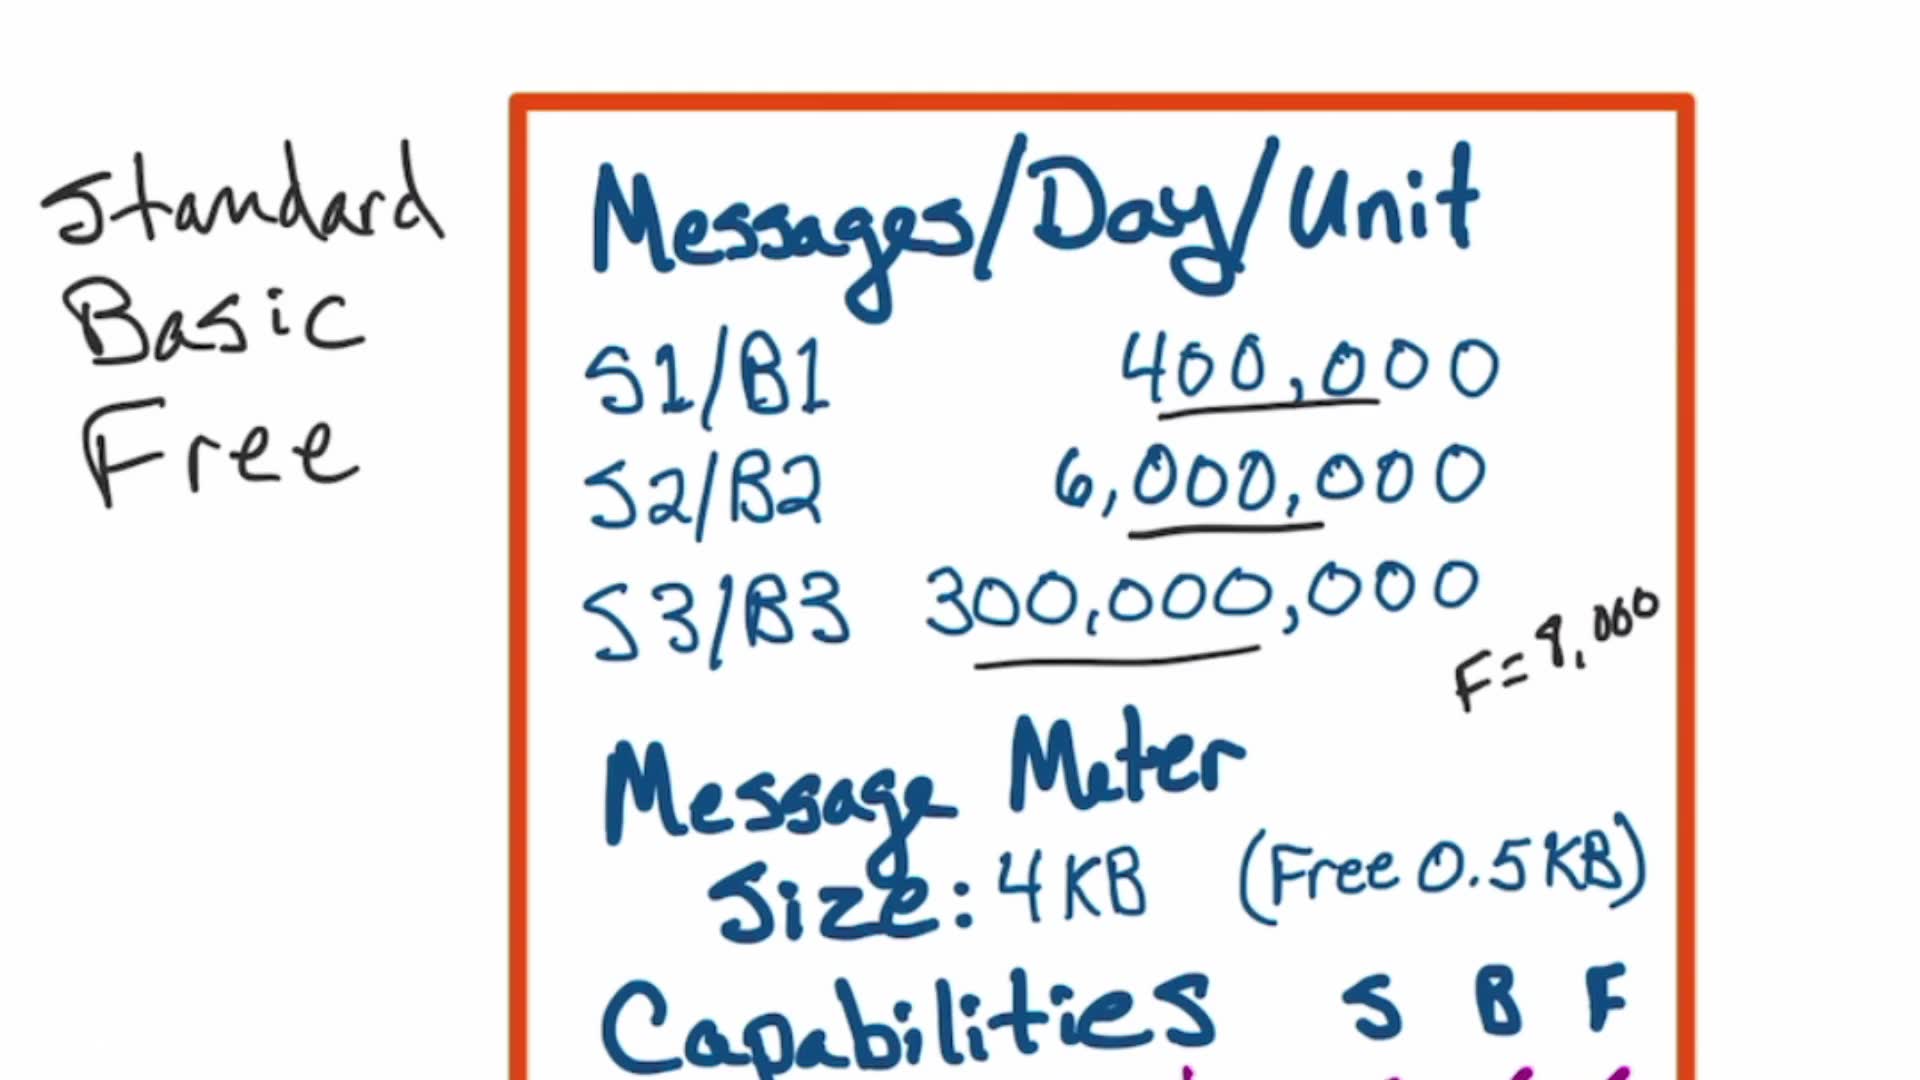 Standard
Basic
Free
Messages/Day/Unit
S1/B1 400,000
S2/B2 6,000,000
S3/B3 300,000,000
F=8,000
Message Meter
Size: 4KB (Free 0.5KB)
Capabilities S B F